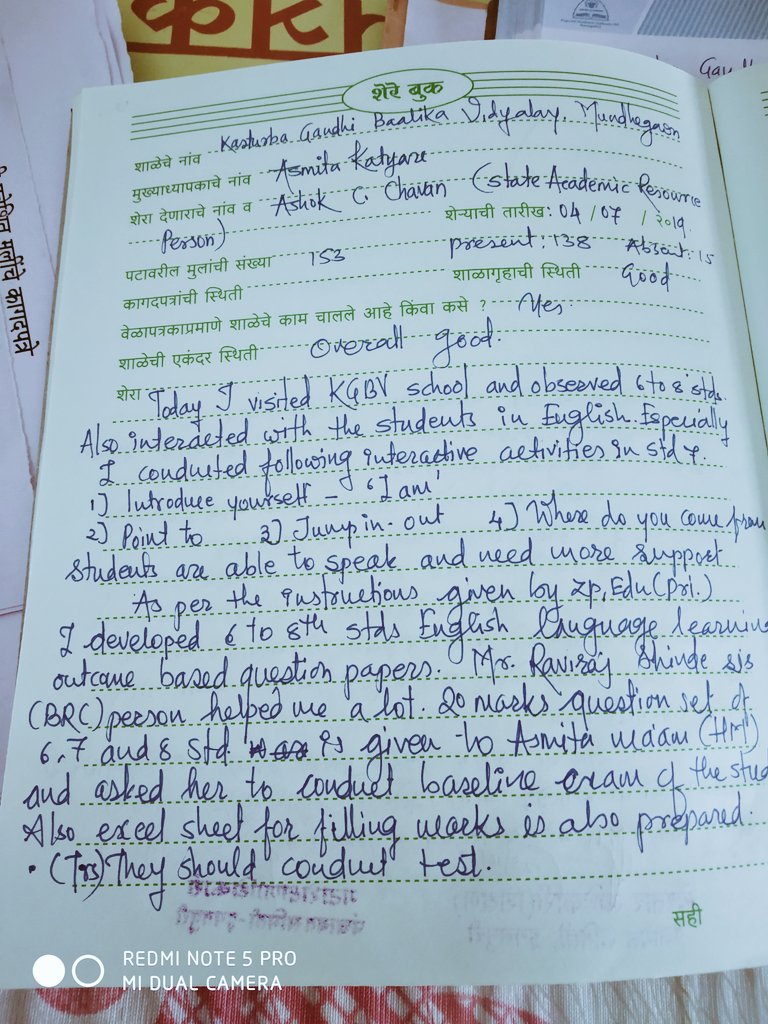 शेरे बुक
शाळेचे नांव Kasturba Gandhi Baalika Vidyalay, Mundhegaon
मुख्याध्यापकाचे नांव Asmita Katyare
शेरा देणाराचे नांव व Ashok C. Chavan (State Academic Resource
Person) शेऱ्याची तारीख: 04/07/२०१९
पटावरील मुलांची संख्या 153 present: 138 Absent: 15
कागदपत्रांची स्थिती शाळागृहाची स्थिती Good
वेळापत्रकाप्रमाणे शाळेचे काम चालले आहे किंवा कसे ? Yes
शाळेची एकंदर स्थिती Overall good.
शेरा Today I visited KGBV school and observed 6 to 8 stds.
Also interacted with the students in English. Especially
I conducted following interactive activities in std 7.
1) Introduce yourself - 'I am'
2) Point to 3) Jump in-out 4) Where do you come from
students are able to speak and need more support
As per the instructions given by ZP, Edu (Pri.)
I developed 6 to 8th stds English language learning
outcome based question papers. Mr. Raviraj Shinde sis
(BRC) person helped me a lot. 20 marks question set of
6,7 and 8 std is given to Asmita ma'am (HM)
and asked her to conduct baseline exam of the stud
Also excel sheet for filling marks is also prepared.
• (Trs) They should conduct test.
सही
REDMI NOTE 5 PRO
MI DUAL CAMERA